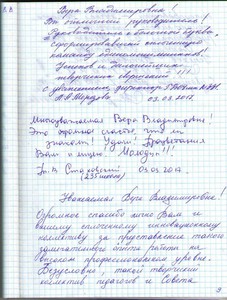 Вера Владимировна!
Вы отличный руководитель!
Руководитель с большой буквы,
сформировавший отличную
команду единомышленников!
Успехов и дальнейших
творческих свершений!!!
с уважением, директор
03.03.2017
Многоуважаемая Вера Владимировна!
Это огромное счастье, что мы
знакомы! Удачи! Процветания
Вам и лицею. Молодцы!!!
(235 школа) 03.03.2017.
Уважаемая Вера Владимировна!
Огромное спасибо лично Вам и
вашему сплоченному инновационному
коллективу за представление такого
замечательного опыта работы на
высоком профессиональном уровне.
Безусловно, такой творческий
коллектив педагогов и Совета
9